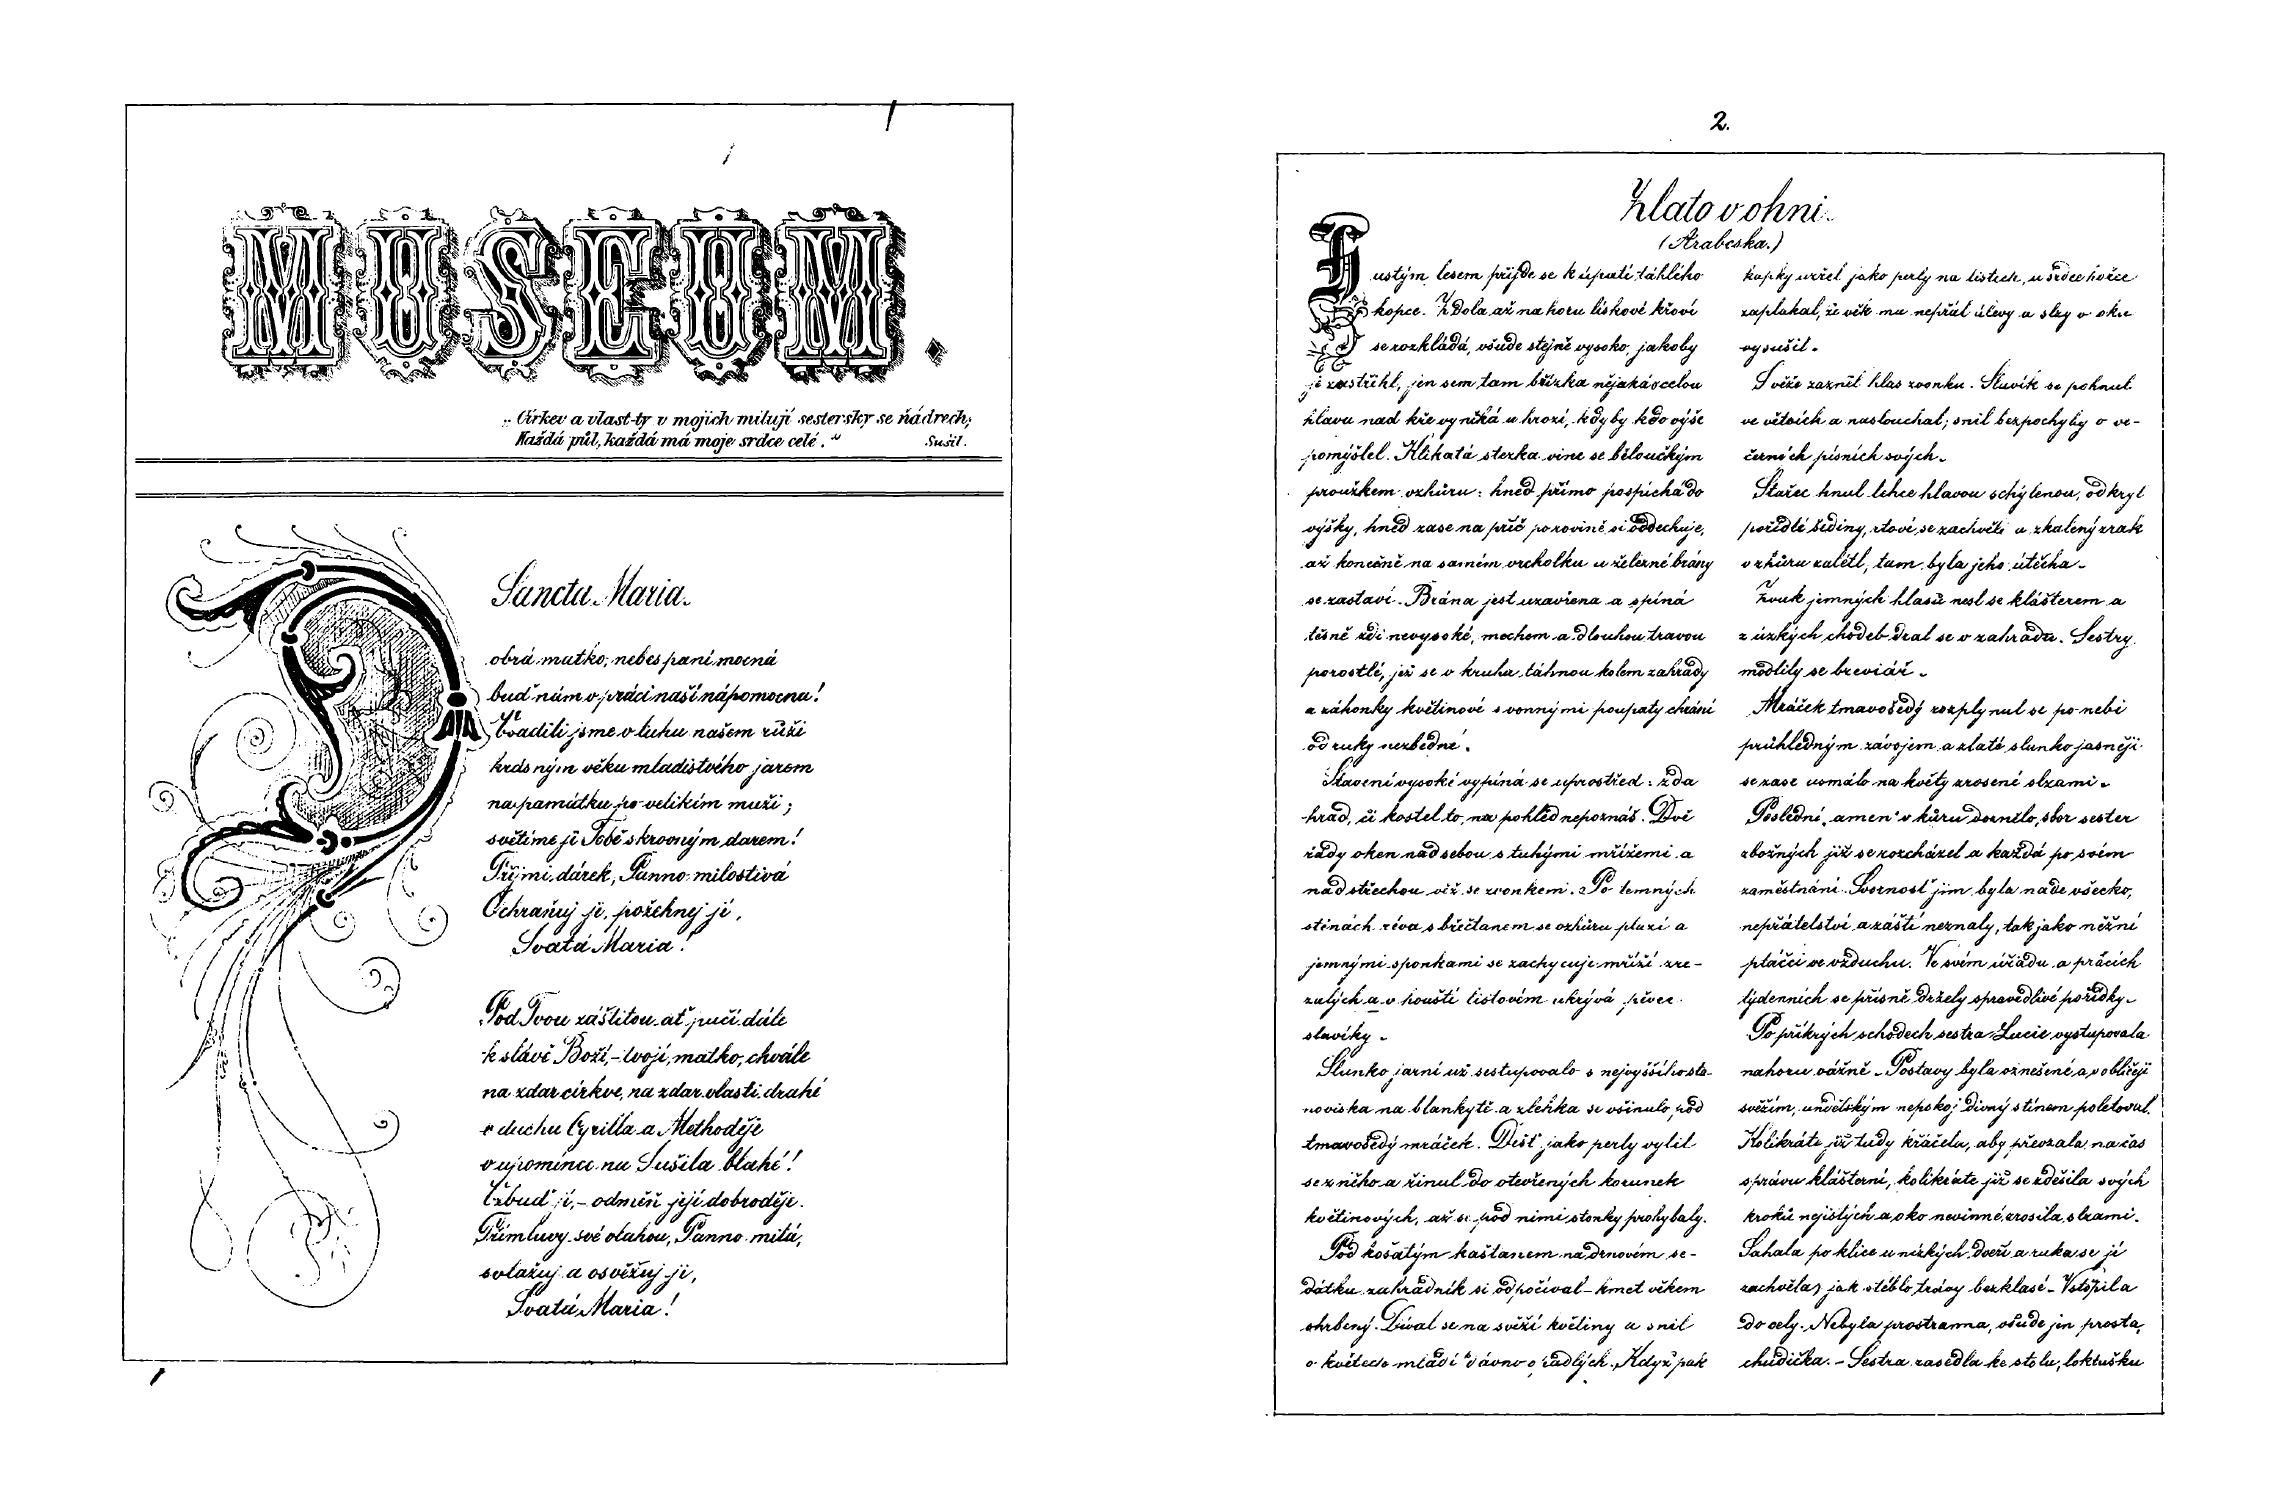 MUSEUM.
„Církev a vlast-ty v mojich milují sestersky se ňádrech;
Každá půl, každá má moje srdce celé."
Sušil.
Sancta Maria.
Dobrá matko, nebes paní mocná
buď nám v práci naší nápomocna!
Vsadili jsme v luhu našem růži
krásným věku mladistvého jarem
na památku po velikém muži;
světíme ji Tobě skrovným darem!
Přijmi dárek, Panno milostivá
Ochraňuj ji, požehnej jí,
Svatá Maria!
Pod Tvou záštitou ať pučí dále
k slávě Boží,- tvojí, matko, chvále
na zdar církve, na zdar vlasti drahé
v duchu Cyrilla a Methoděje
v upomínce na Sušila blahé!
Vzbuď jí,- odměň její dobroděje.
Přímluvy své vlahou, Panno milá,
svlažuj a osvěžuj ji,
Svatá Maria!
2.
Zlato v ohni.
(Arabeska.)
Hustým lesem přijde se k úpatí táhlého
kopce. Z dola až na horu lískové křoví
se rozkládá, všude stejně vysoko, jakoby
je zastřihl, jen sem tam břízka nějaká celou
hlavu nad kře vyniká a hrozí, kdyby kdo výše
pomýšlel. Klikatá stezka vine se běloučkým
proužkem vzhůru: hned přímo pospíchá do
výšky, hned zase na příč po rovině si oddechuje,
až konečně na samém vrcholku u železné brány
se zastaví. Brána jest uzavřena a spíná
těsně zdi nevysoké, mechem a dlouhou travou
porostlé, jež se v kruhu táhnou kolem zahrady
a záhonky květinové s vonnými poupaty chrání
od ruky nezbedné.
Stavení vysoké vypíná se uprostřed: zda
hrad, či kostel to, na pohled nepoznáš. Dvě
řady oken nad sebou s tuhými mřížemi a
nad střechou věž se zvonkem. Po temných
stěnách réva s břečťanem se vzhůru pluzí a
jemnými sponkami se zachycuje mříží zre-
zalých a v houští listovém ukrývá pěvce
slavíky.
Slunko jarní už sestupovalo s nejvyššího sta-
noviska na blankytě a zlehka se všinulo pod
tmavošedý mráček. Déšť jako perly vylil
se z něho a řinul do otevřených korunek
květinových, až se pod nimi stonky prohybaly.
Pod košatým kaštanem na drnovém se-
dátku zahradník si odpočíval – kmet věkem
shrbený. Díval se na svěží květiny a snil
o květech mládí dávno opadlých. Když pak
kapky uzřel jako perly na listech, u srdce hořce
zaplakal, že věk mu nepřál úlevy a slzy v oku
vysušil.
S věže zazněl hlas zvonku. Slavík se pohnul
ve větvích a naslouchal; snil bezpochyby o ve-
černích písních svých.
Stařec hnul lehce hlavou schýlenou, odkryl
pořídlé šediny, rtové se zachvěli a zkalený zrak
vzhůru zalétl, tam byla jeho útěcha.
Zvuk jemných hlasů nesl se klášterem a
z úzkých chodeb dral se v zahradu. Sestry
modlily se breviář.
Mráček tmavošedý rozplynul se po nebi
průhledným závojem a zlaté slunko jasněji
se zase usmálo na květy zrosené slzami.
Poslední „amen" v kůru doznělo, sbor sester
zbožných již se rozcházel a každá po svém
zaměstnání. Svornosť jim byla nade všecko,
nepřátelství a záští neznaly, tak jako něžní
ptáčci ve vzduchu. Ve svém úřadu a prácích
týdenních se přísně držely spravedlivé pořídky.
Po příkrých schodech sestra Lucie vystupovala
nahoru vážně. Postavy byla vznešené a v obličeji
svěžím, andělským nepokoj divný stínem poletoval.
Kolikráte již tudy kráčela, aby převzala na čas
správu klášterní, kolikráte již se zděsila svých
kroků nejistých a oko nevinné zrosila slzami.
Sahala po klice u nízkých dveří a ruka se jí
zachvěla, jak stéblo trávy bezklasé. Vstoupila
do cely. Nebyla prostranna, všude jen prosta,
chudička. – Sestra zasedla ke stolu, loktušku